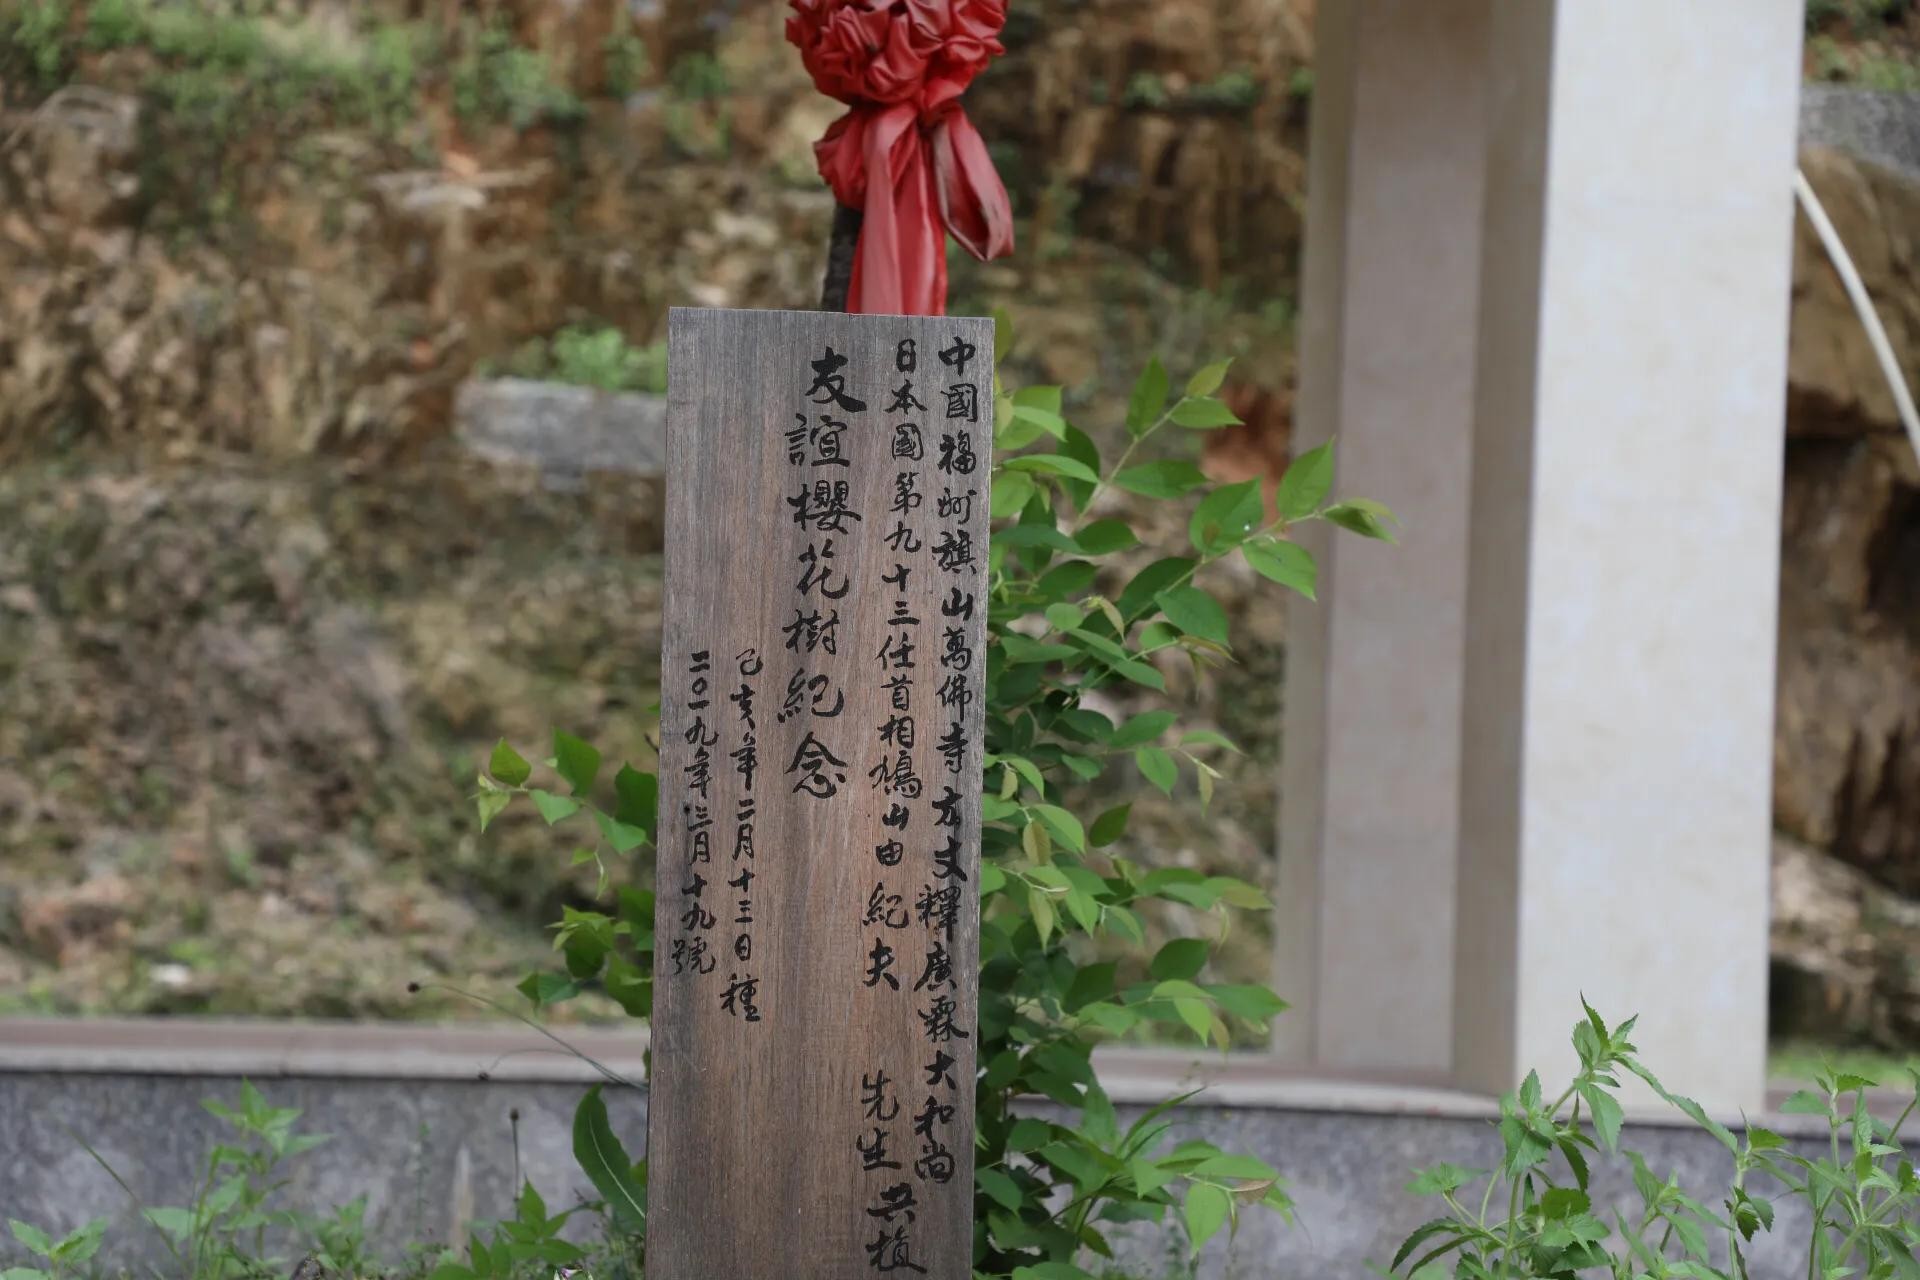 中國福州旗山萬佛寺方丈釋廣霖大和尚
日本國第九十三任首相鳩山由紀夫先生共植
友誼櫻花樹紀念
己亥年二月十三日種
二〇一九年三月十九號